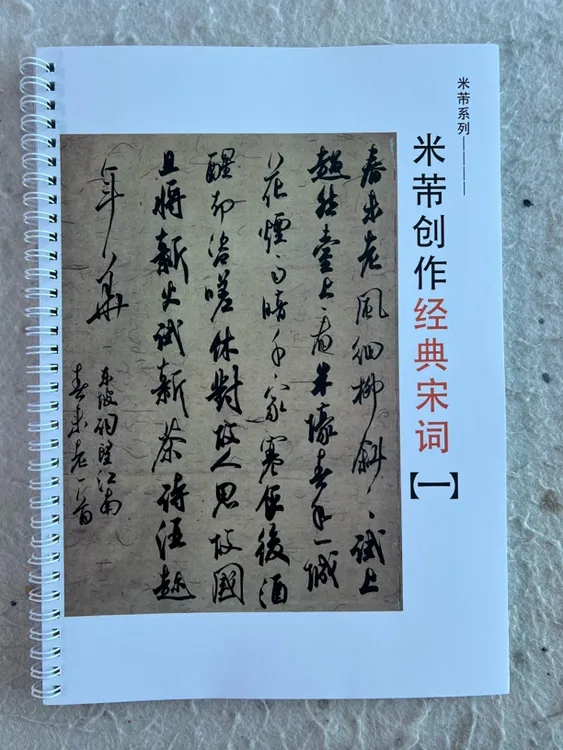 米芾系列————
米芾创作经典宋词
【一】
春未老風細柳斜〻試上
超然臺上看半壕春水一城
花煙雨暗千家寒食後酒
醒却咨嗟休對故人思故國
且將新火試新茶詩酒趁
年華
東坡詞望江南
春未老一首